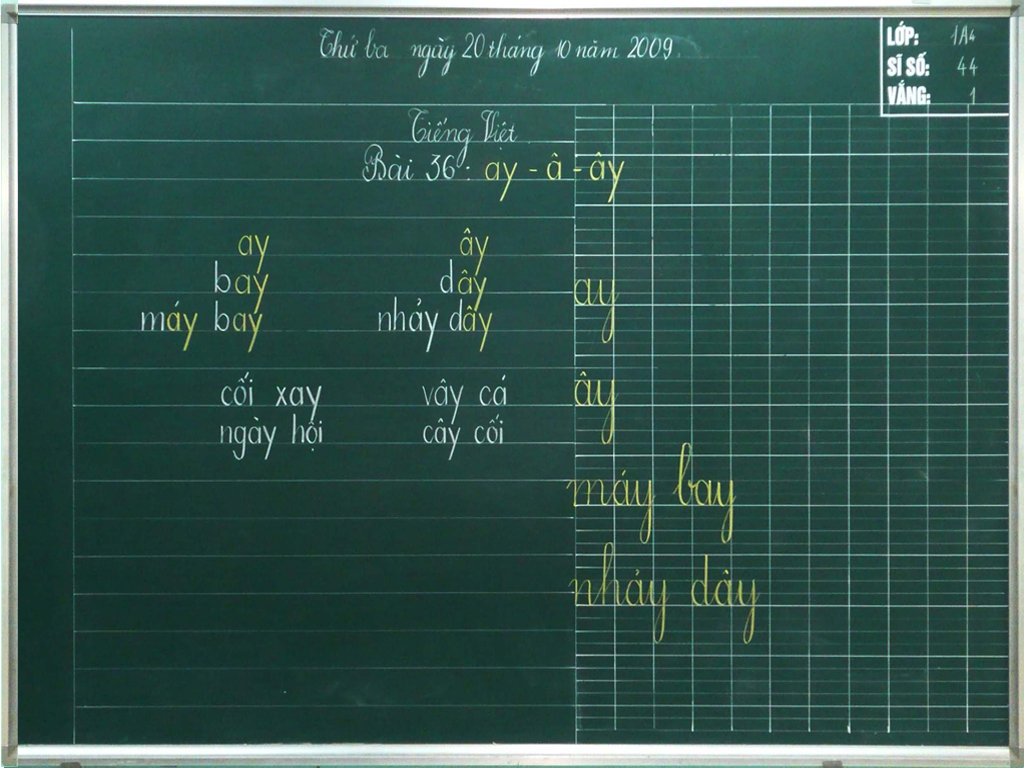 Thứ ba ngày 20 tháng 10 năm 2009.
LỚP: 1A4
SĨ SỐ: 44
VẮNG: 1
Tiếng Việt
Bài 36: ay - â - ây
ay ây
bay dây
máy bay nhảy dây
cối xay vây cá
ngày hội cây cối
ay
ây
máy bay
nhảy dây